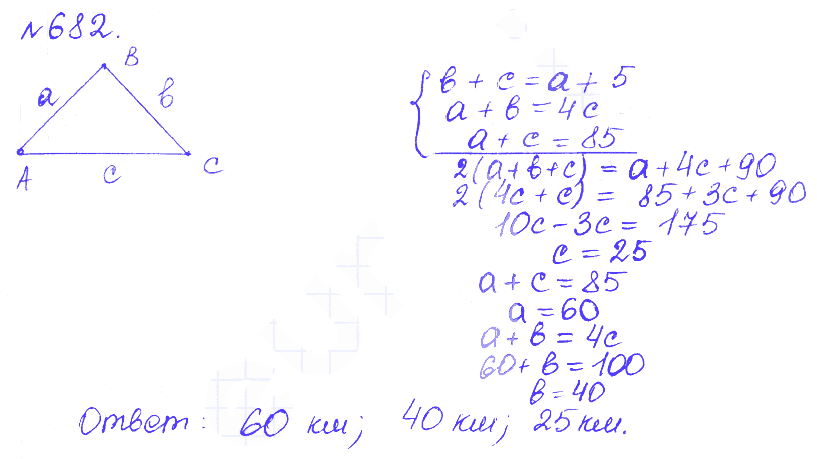 №682.
B
a
в
A
c
C
в + c = a + 5
a + в = 4c
a + c = 85
2(a+в+c) = a+4c+90
2(4c+c) = 85+3c+90
10c-3c = 175
c = 25
a + c = 85
a = 60
a + в = 4c
60 + в = 100
в = 40
Ответ: 60 км; 40 км; 25 км.